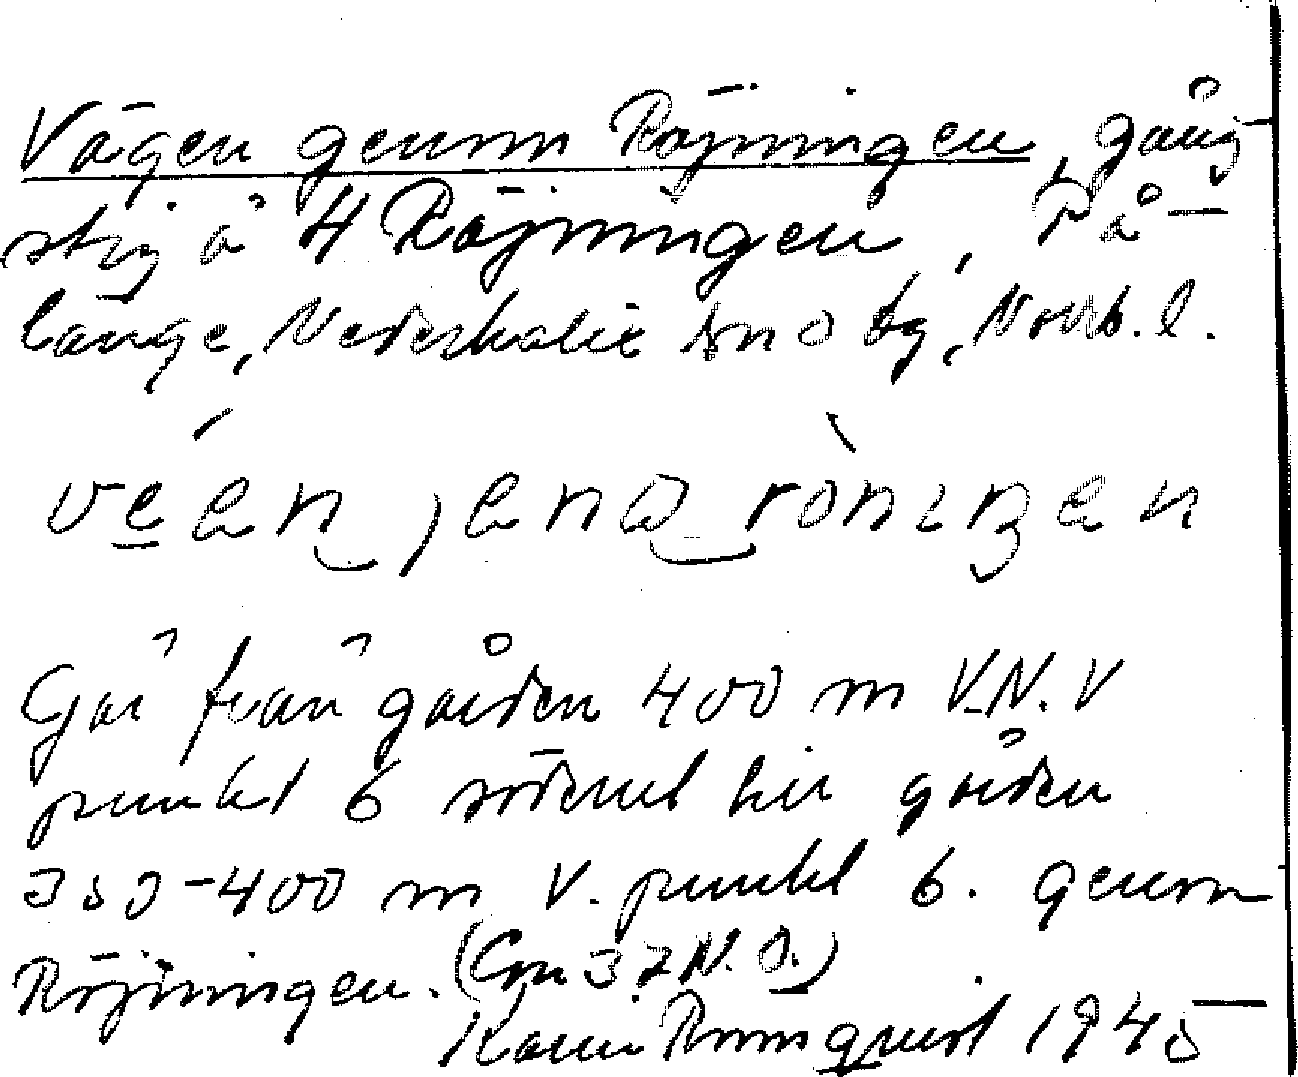 Vägen genom Röjningen, gång-
stig å 4 Röjningen, På-
länge, Nederkalix sn o tg, Norrb. l.
vēán jenɷ ròniŋen
Går från gården 400 m V.N.V
punkt 6 söderut till gården
350-400 m V. punkt 6. genom
Röjningen. (Cm 37 N.O.)
Karin Rönnqvist 1945